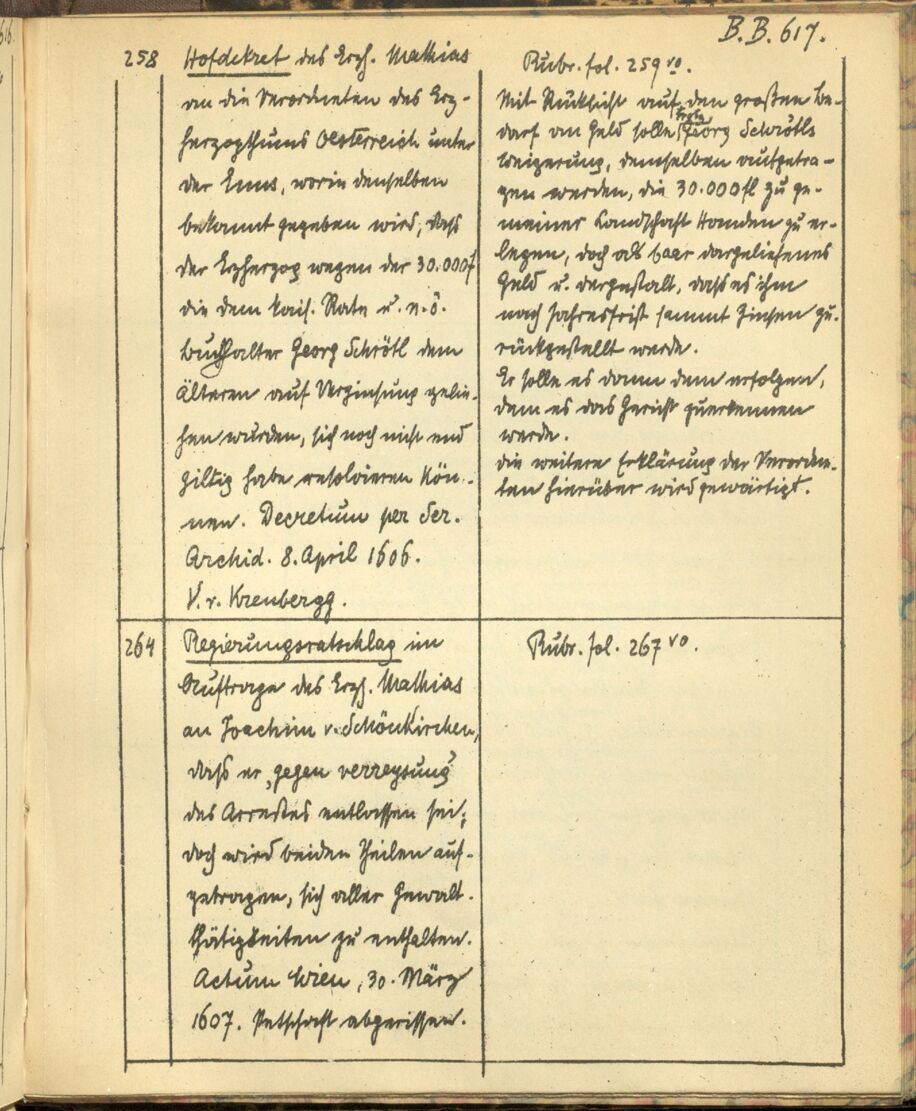 B.B. 617.
258
Hofdekret des Erzh. Mathias
an die Verordneten des Erz-
herzogthums Oesterreich unter
der Enns, worin denselben
bekannt gegeben wird, daß
der Erzherzog wegen der 30.000 f
die dem kais. Rate u. n. ö.
Buchhalter Georg Schrötl dem
Älteren auf Verzinsung gelie-
hen wurden, sich noch nicht end
giltig habe resolvieren kön-
nen. Decretum per Ser.
Archid. 8. April 1606.
V. v. Krenbergg.
Rubr. fol. 259 vo.
Mit Rücksicht auf den großen Be-
darf an Geld solle, trotz Georg Schrötls
Weigerung, demselben aufgetra-
gen werden, die 30.000 fl zu ge-
meiner Landschaft Handen zu er-
legen, doch als baar dargeliehenes
Geld u. dergestalt, daß es ihm
nach Jahresfrist sammt Zinsen zu-
rückgestellt werde.
Er solle es dann dem erfolgen,
dem es das Gericht zuerkennen
werde.
Die weitere Erklärung der Verordne-
ten hierüber wird gewärtigt.
264
Regierungsratschlag im
Auftrage des Erzh. Mathias
an Joachim v. Schönkirchen,
daß er „gegen verreysung"
des Arrestes entlassen sei;
doch wird beiden Theilen auf-
getragen, sich aller Gewalt-
thätigkeiten zu enthalten.
Actum Wien, 30. März
1607. Petschaft abgerissen.
Rubr. fol. 267 vo.